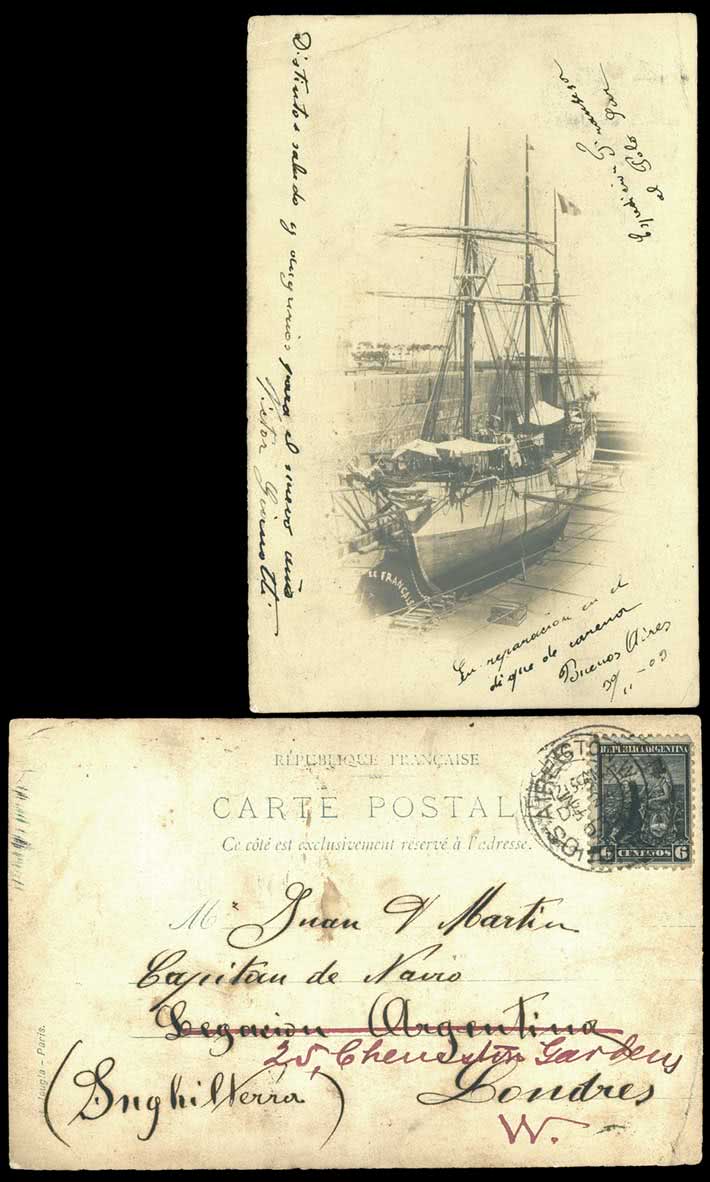 Distintos saludo y augurios para el nuevo año
Victor Gianotti
Expedicion Francesa
al Polo Sur
LE FRANÇAIS
En reparacion en el
dique de carena
Buenos Aires
30/11-03
RÉPUBLIQUE FRANÇAISE
CARTE POSTALE
Ce côté est exclusivement reservé à l'adresse.
REPUBLICA ARGENTINA
6 CENTAVOS 6
M Juan A Martin
Capitan de Navio
Legacion Argentina
25, Cheniston Gardens
(Inghilterra) Londres
W.
Jougla - Paris.